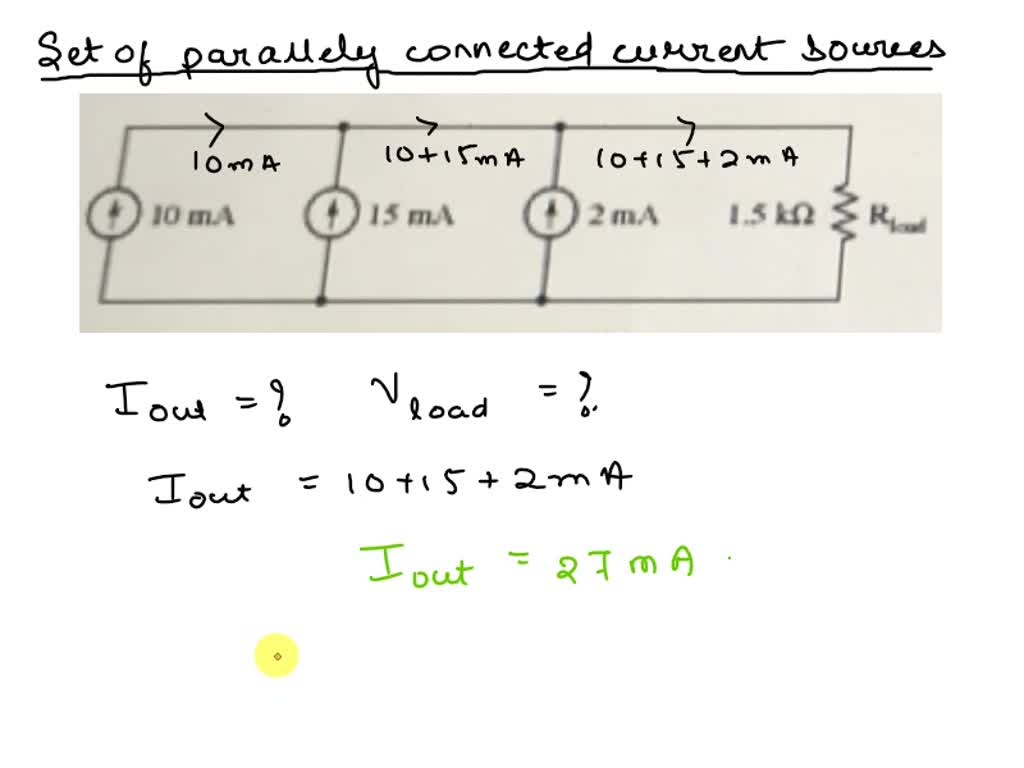 Set of parallely connected current sources
10mA 10+15mA 10+15+2mA
10 mA 15 mA 2 mA 1.5 kΩ Rload
Iout = ? Vload = ?
Iout = 10+15+2mA
Iout = 27mA.